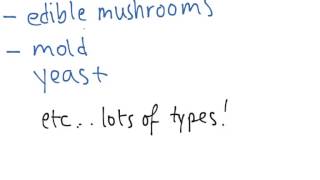 - edible mushrooms
- mold
yeast
etc... lots of types!